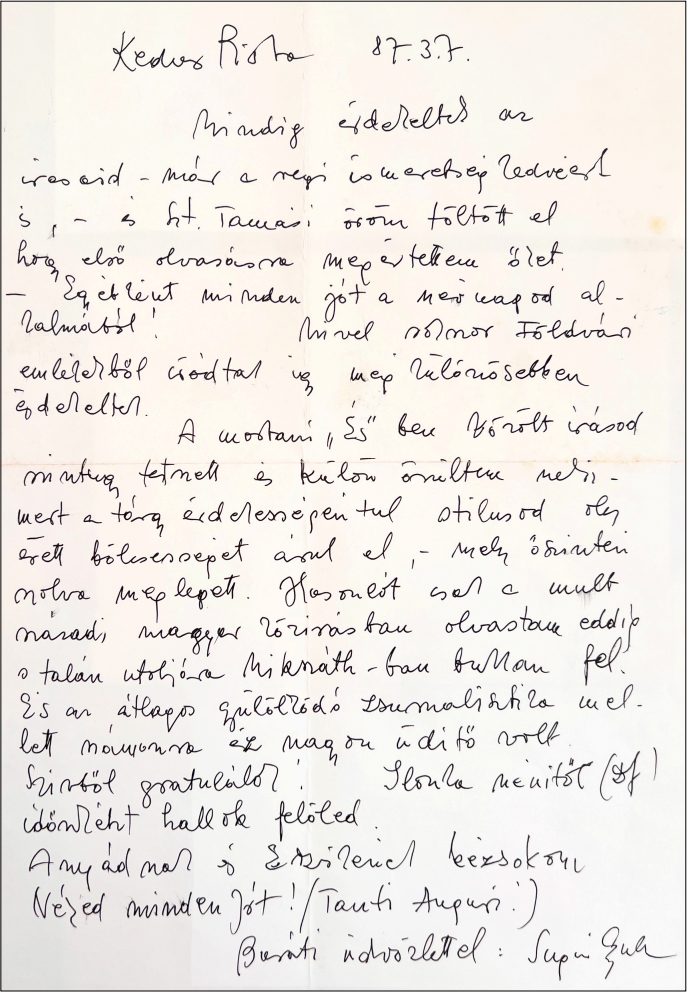 Kedves Piroska 87.3.7.
Mindig érdekeltek az
írásaid – már a régi ismeretség kedvéért
is, – és Szt. Tamási öröm töltött el
hogy első olvasásra megértettem őket.
– Egyébként minden jót a névnapod al-
kalmából! Mivel szomor Földvári
emlékekből íródtak így még különösebben
érdekeltek.
A mostani „És" ben közölt írásod
mintegy tetszett és külön örültem neki –
mert a tárgy érdekességén tul stilusod oly
érett bölcsességet árul el, – mely őszintén
szólva meglepett. Hasonlót csak a mult
századi magyar közirásban olvastam eddig
s talán utoljára Mikszáth-ban bukkan fel.
És az átlagos gyűlölködő zsurnalisztika mel-
lett számomra ez nagyon üdítő volt.
Szivből gratulálok! Ilonka nénitől
időnként hallok felőled.
Anyádnak és Eszikének kézcsókom
Néked minden jót! (Tanti Auguri!)
Baráti üdvözlettel: